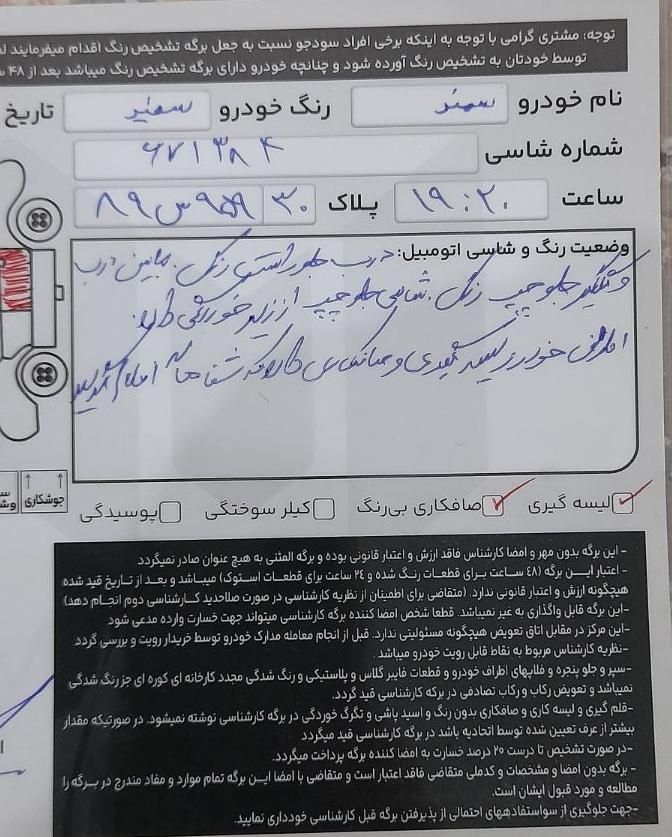 توجه: مشتری گرامی با توجه به اینکه برخی افراد سودجو نسبت به جعل برگه تشخیص رنگ اقدام میفرمایند
توسط خودتان به تشخیص رنگ آورده شود و چنانچه خودرو دارای برگه تشخیص رنگ میباشد بعد از ۴۸
نام خودرو سمند رنگ خودرو سفید تاریخ
شماره شاسی ۶۷۱۳۸۴
ساعت ۱۹:۲۰ پلاک ۳۰ ۹۵۹ س ۸۹
وضعیت رنگ و شاسی اتومبیل: درب جلو راست رنگ. مابین درب
و گلگیر جلو چپ رنگ. شاسی جلو چپ از زیر خوردگی دارد
اطراف خودرو لیسه گیری و صافکاری دارد که شفاها اعلام گردید
جوشکاری
لیسه گیری صافکاری بی‌رنگ کیلر سوختگی پوسیدگی
- این برگه بدون مهر و امضا کارشناس فاقد ارزش و اعتبار قانونی بوده و برگه المثنی به هیچ عنوان صادر نمیگردد
- اعتبار این برگه (۴۸ ساعت برای قطعات رنگ شده و ۲۴ ساعت برای قطعات استوک) میباشد و بعد از تاریخ قید شده
هیچگونه ارزش و اعتبار قانونی ندارد. (متقاضی برای اطمینان از نظریه کارشناسی در صورت صلاحدید کارشناسی دوم انجام دهد)
-این برگه قابل واگذاری به غیر نمیباشد. قطعا شخص امضا کننده برگه کارشناسی میتواند جهت خسارت وارده مدعی شود
-این مرکز در مقابل اتاق تعویض هیچگونه مسئولیتی ندارد. قبل از انجام معامله مدارک خودرو توسط خریدار رویت و بررسی گردد
-نظریه کارشناس مربوط به نقاط قابل رویت خودرو میباشد.
-سپر و جلو پنجره و فلاپهای اطراف خودرو و قطعات فایبر گلاس و پلاستیکی و رنگ شدگی مجدد کارخانه ای کوره ای جز رنگ شدگی
نمیباشد و تعویض رکاب و رکاب تصادفی در برگه کارشناسی قید گردد.
-قلم گیری و لیسه کاری و صافکاری بدون رنگ و اسید پاشی و تگرگ خوردگی در برگه کارشناسی نوشته نمیشود. در صورتیکه مقدار
بیشتر از عرف تعیین شده توسط اتحادیه باشد در برگه کارشناسی قید میگردد
-در صورت تشخیص نا درست ۲۰ درصد خسارت به امضا کننده برگه پرداخت میگردد.
- برگه بدون امضا و مشخصات و کدملی متقاضی فاقد اعتبار است و متقاضی با امضا این برگه تمام موارد و مفاد مندرج در برگه را
مطالعه و مورد قبول ایشان است.
-جهت جلوگیری از سواستفادههای احتمالی از پذیرفتن برگه قبل کارشناسی خودداری نمایید.